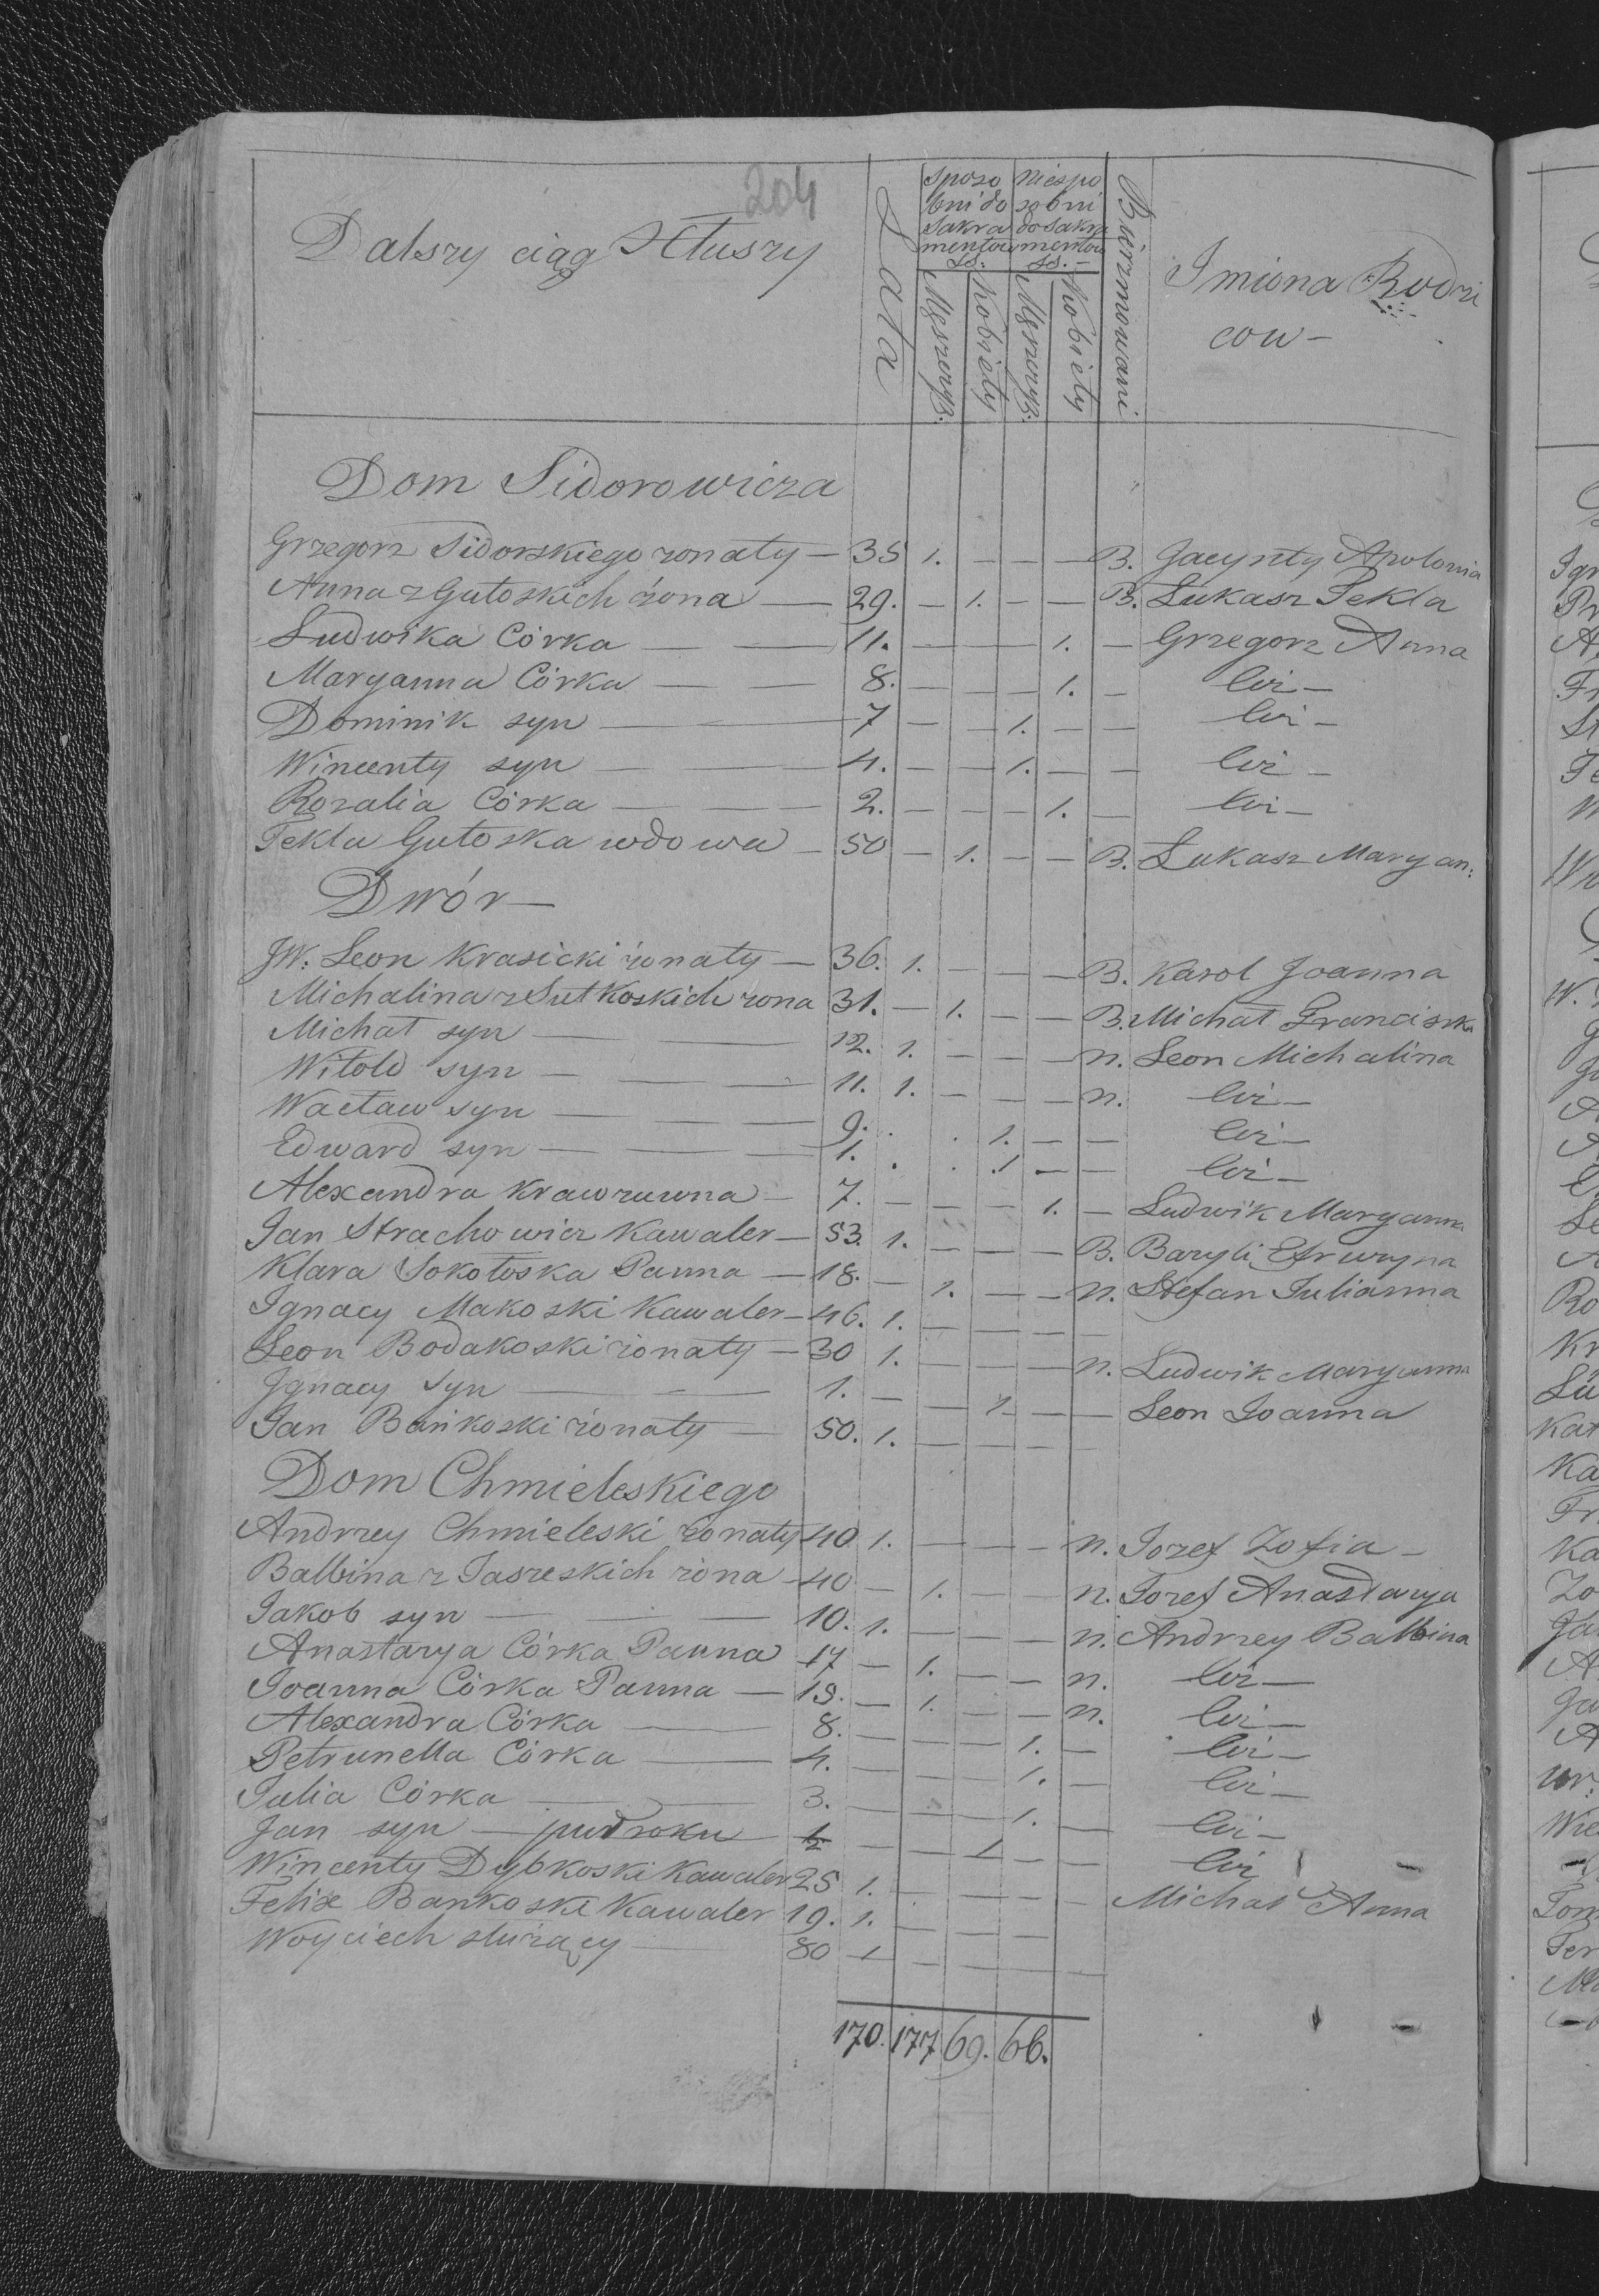 204
Dalszy ciąg Kłuszy
Lata
Sposo bni do Sakra mentow SS:
Niespo sobni do Sakra mentow SS. —
Męszczyź:
Kobiety
Męszczyź:
Kobiety
Bierzmowani
Imiona Rodzi cow —
Dom Sidorowicza
Grzegorz Sidorskiego zonaty — 35 1. — — — B. Jacynty Apolonia
Anna z Gutoskich żona — 29. — 1. — — B. Łukasz Tekla
Ludwika Córka — — 11. — — — 1. — Grzegorz Anna
Maryanna Córka — — 8. — — — 1. — ciż —
Dominik syn — — 7 — — 1. — — ciż —
Wincenty syn — — 4. — — 1. — — ciż —
Rozalia Córka — — 2. — — — 1. — ciż —
Tekla Gutoska wdowa — 50 — 1. — — B. Łukasz Maryan:
Dwór —
JW. Leon Krasicki żonaty — 36. 1. — — — B. Karol Joanna
Michalina z Sutkoskich zona 31. — 1. — — B. Michał Franciszka
Michał syn — — 12. 1. — — — n. Leon Michalina
Witold syn — — — 11. 1. — — — n. ciż —
Wacław syn — — — 9. . . 1. — — ciż —
Edward syn — — — 1. . . 1 — — ciż —
Alexandra Krawzuwna — 7. — — — 1. — Ludwik Maryanna
Jan Strachowicz Kawaler — 53. 1. — — — B. Bazyli
Klara Sokołoska Panna — 18. — 1. — — n. Stefan Julianna
Ignacy Makoski Kawaler — 46. 1. — — — —
Leon Bodakoski żonaty — 30 1. — — — n. Ludwik Maryanna
Jgnacy Syn — — 1. — — 1 — — Leon Joanna
Jan Bańkoski żonaty — 50. 1. — — —
Dom Chmieleskiego
Andrzey Chmieleski żonaty 40 1. — — — n. Jozef Zofia —
Balbina z Jaszeskich żona — 40 — 1. — — n. Jozef Anastazya
Jakob syn — — — 10. 1. — — — n. Andrzey Balbina
Anastazya Córka Panna 17 — 1. — — n. ciż —
Joanna Córka Panna — 15. — 1. — — n. ciż —
Alexandra Córka — 8. — — — 1. — ciż —
Petrunella Córka — 4. — — — 1. — ciż —
Julia Córka — — 3. — — — 1. — ciż —
Jan syn — puł roku ½ — — 1 — — ciż
Wincenty Dybkoski Kawaler 25 1. — — — — Michał Anna
Felix Bankoski Kawaler 19. 1. — — —
Woyciech służący — 80 1 — — — —
170. 177 69. 66.